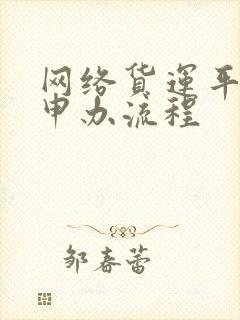 网络货运平
申办流程
邹春蕾